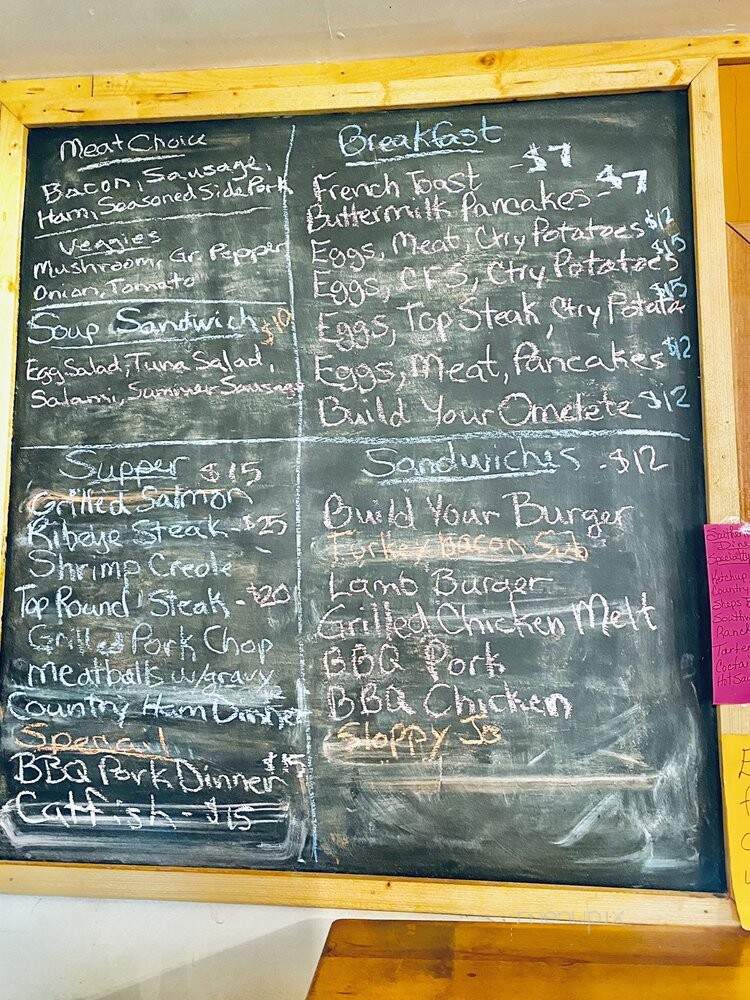 Meat Choice
Bacon, Sausage,
Ham, Seasoned Side Pork
Veggies
Mushroom, Gr. Pepper
Onion, Tomato
Soup Sandwich $10
Egg Salad, Tuna Salad,
Salami, Summer Sausage
Breakfast
French Toast - $7
Buttermilk Pancakes - $7
Eggs, Meat, Ctry Potatoes $12
Eggs, CFS, Ctry Potatoes $15
Eggs, Top Steak, Ctry Potato $15
Eggs, Meat, Pancakes $12
Build Your Omelete $12
Supper $15
Grilled Salmon
Ribeye Steak - $25
Shrimp Creole
Top Round Steak - $20
Grilled Pork Chop
Meatballs w/gravy
Country Ham Dinner
Special
BBQ Pork Dinner $15
Catfish - $15
Sandwiches - $12
Build Your Burger
Turkey Bacon Sub
Lamb Burger
Grilled Chicken Melt
BBQ Pork
BBQ Chicken
Sloppy Jo
Ketchup
Country